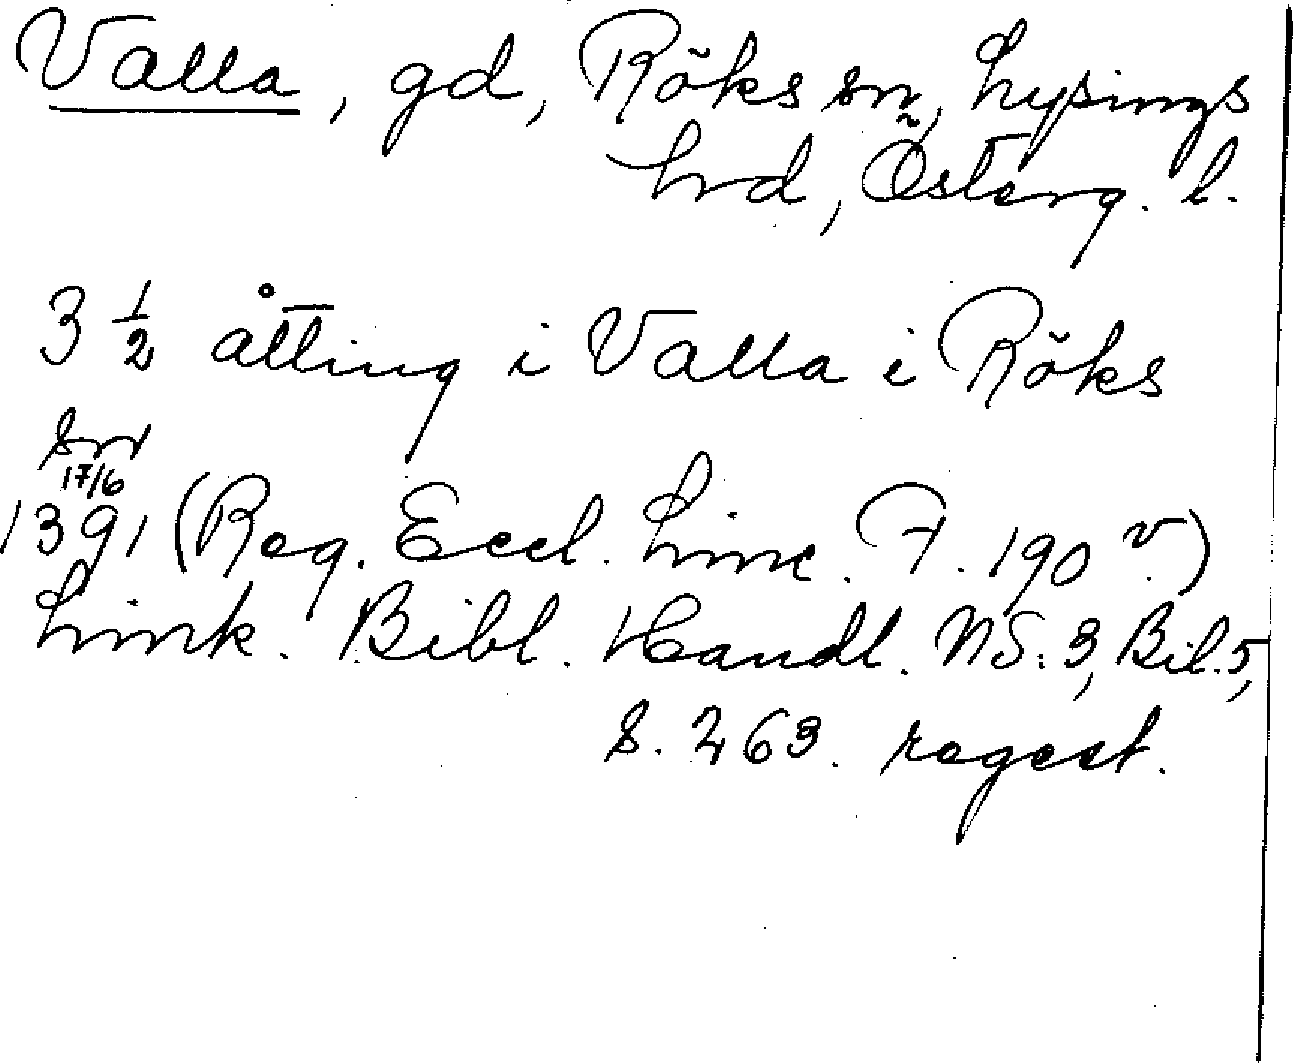 Valla, gd, Röks sn, Lysings
hrd, Österg. l.
3 1/2 åtting i Valla i Röks
sn
17/6
1391 (Reg. Eccl. Linc. F. 190 v.)
Link. Bibl. Handl. NS. 3, Bil. 5,
s. 263. regest.